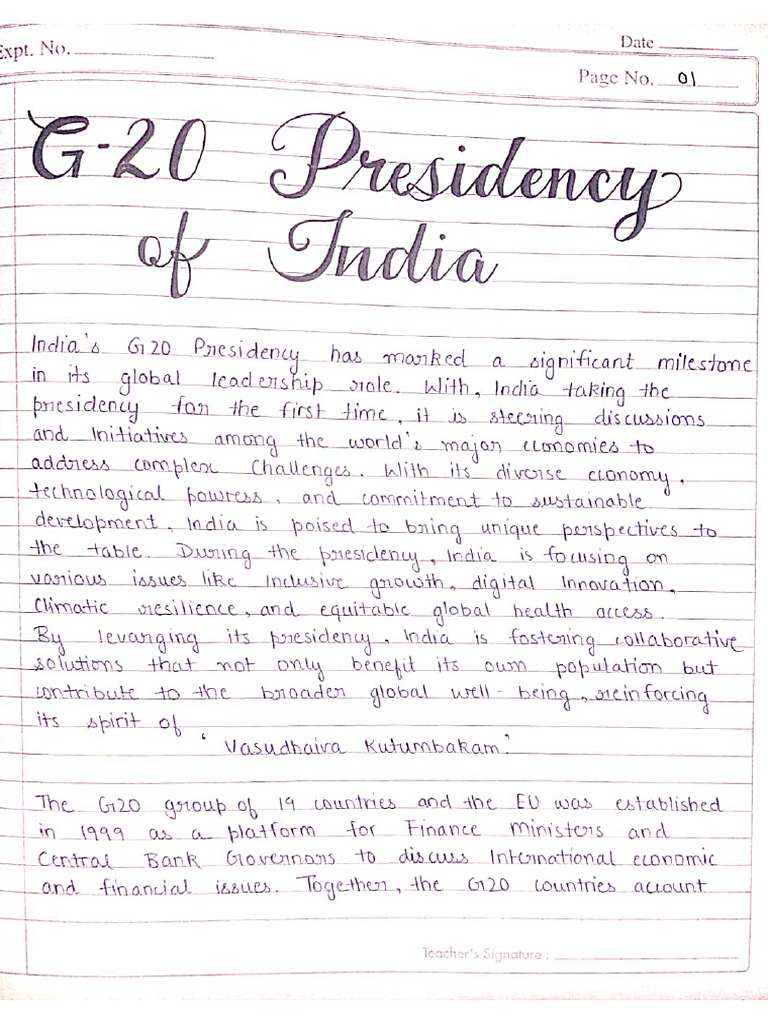 Expt. No.
Date
Page No. 01
G-20 Presidency
of India
India's G20 Presidency has marked a significant milestone
in its global leadership role. With, India taking the
presidency for the first time, it is steering discussions
and Initiatives among the world's major economies to
address complex Challenges. With its diverse economy,
technological powress, and commitment to sustainable
development, India is poised to bring unique perspectives to
the table. During the presidency, India is focusing on
various issues like Inclusive growth, digital Innovation,
Climatic resilience, and equitable global health access.
By levarging its presidency, India is fostering collaborative
solutions that not only benefit its own population but
contribute to the broader global well-being, reinforcing
its spirit of
'Vasudhaiva Kutumbakam.'
The G20 group of 19 countries and the EU was established
in 1999 as a platform for Finance Ministers and
Central Bank Governors to discuss International economic
and financial issues. Together, the G20 countries account
Teacher's Signature :